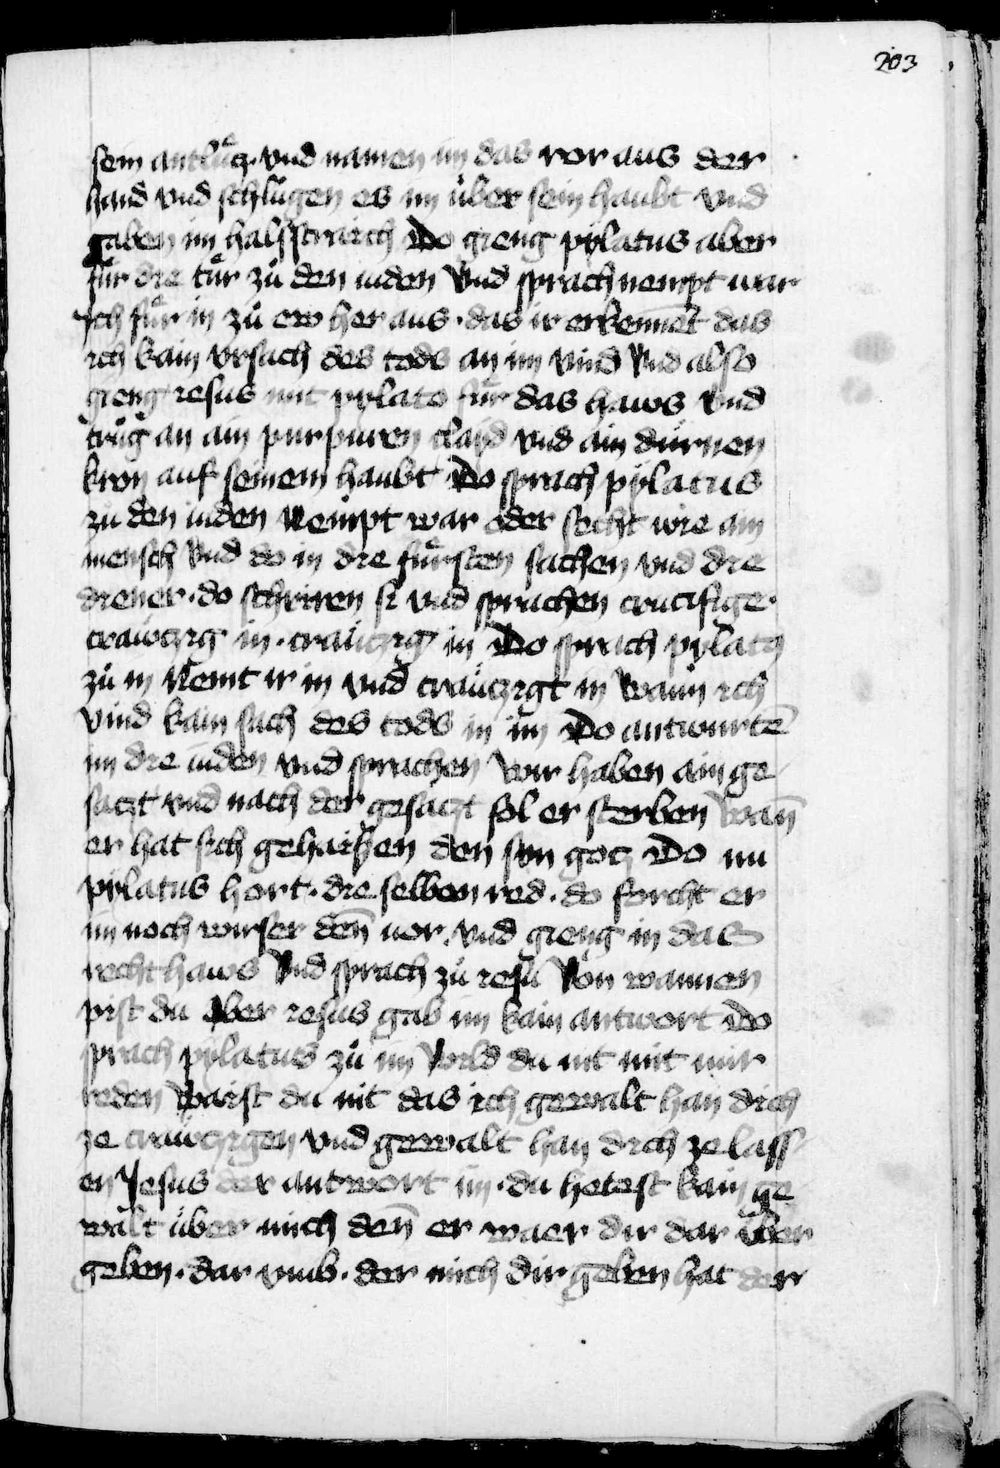 203
sein antlúcz · vnd namen im das ror aus der
hand vnd schlůgen es im úber sein haubt vnd
gaben im halsstraich Do gieng pylatus aber
fúr die túr zů den iuden Vnd sprach nempt war
Ich fúr in zů ew her aus · das ir erkenn̄et das
ich kain vrsach des tods an im vind Vnd also
gieng iesus mit pylato fúr das haws vnd
trůg an ain purpuren claid vnd ain dúrnen
kron auf seinem haubt Do sprach pylatus
zů den iuden Nempt war oder secht wie ain
mensch Vnd do in die fúrsten sachen vnd die
diener · do schriren si vnd sprachen crucifige ·
crawczig in · craúczig in Do sprach pylatꝫ
zů in Nemt ir in vnd craúczigt in Wann ich
vind kain sach des tods in im Do antwurtē
im die iuden vnd sprachen Wir haben ain ge
saczt vnd nach der gesaczt sol er sterben Wañ
er hat sich gehaissen den sun gotz Do nu
pylatus hort · die selben red · do forcht er
im noch wirser deñ vor · vnd gieng in das
richt haws Vnd sprach zů iesu Von wannen
pist du Aber iesus gab im kain antwort Do
sprach pylatus zů im Wild du nit mit mir
reden Waist du nit das ich gewalt han dich
ze crawczigen vnd gewalt han dich ze lass
en Jesus der antwort im · du hetest kain ge
walt úber mich deñ er waer dir dar úber
geben · dar vmb · der mich dir geben hat der